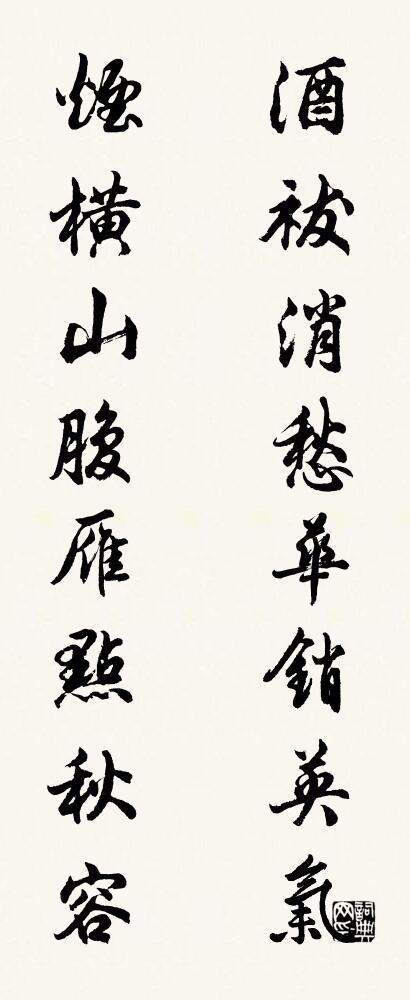 酒祓消愁華銷英氣
煙橫山腹雁點秋容
詞典网印